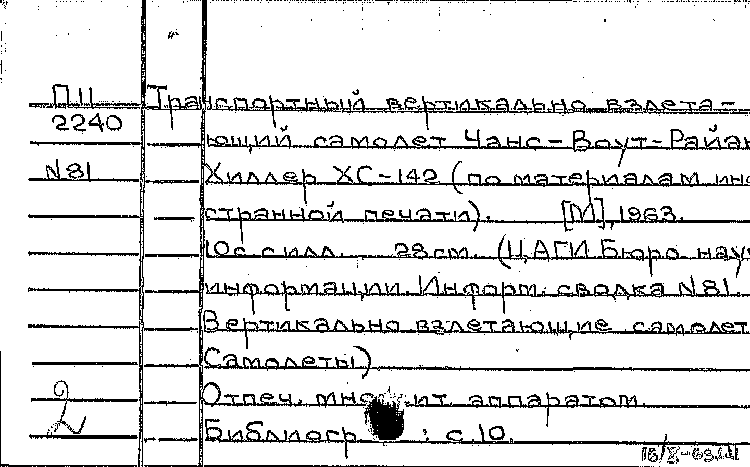 П11 Транспортный вертикально взлета-
2240 ющий самолет Чанс-Воут-Райан
N81 Хиллер ХС-142 (по материалам ино
странной печати). [М], 1963.
10с с илл. 28см. (ЦАГИ Бюро науч
информации. Информ. сводка N81.
Вертикально взлетающие самолет
Самолеты)
2 Отпеч. множит аппаратом.
Библиогр : с.10.